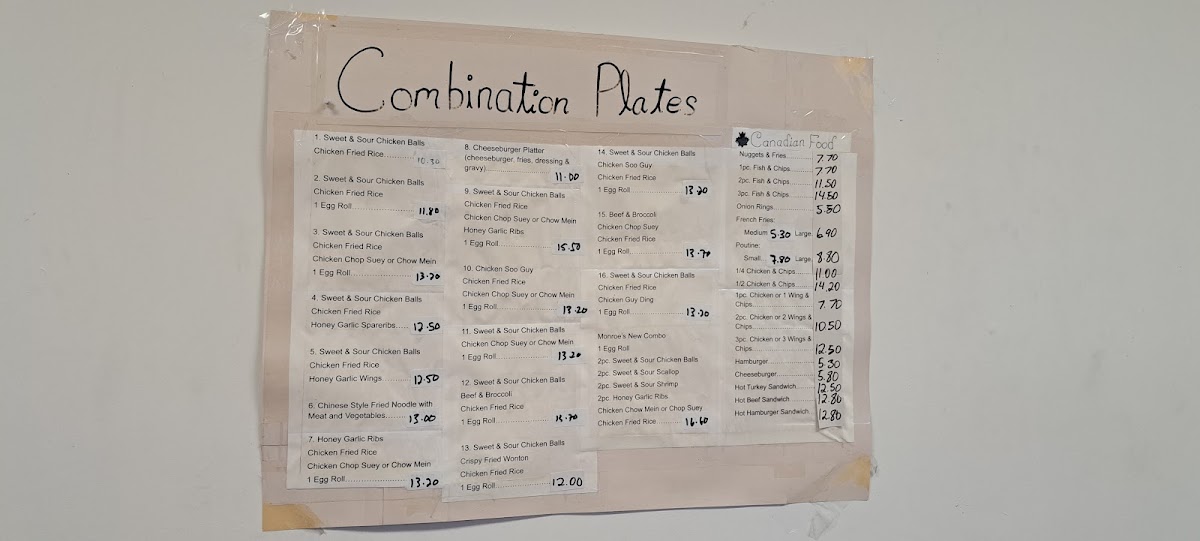 Combination Plates
1. Sweet & Sour Chicken Balls
Chicken Fried Rice.......... 10.30
2. Sweet & Sour Chicken Balls
Chicken Fried Rice
1 Egg Roll.......... 11.80
3. Sweet & Sour Chicken Balls
Chicken Fried Rice
Chicken Chop Suey or Chow Mein
1 Egg Roll.......... 13.20
4. Sweet & Sour Chicken Balls
Chicken Fried Rice
Honey Garlic Spareribs..... 12.50
5. Sweet & Sour Chicken Balls
Chicken Fried Rice
Honey Garlic Wings.......... 12.50
6. Chinese Style Fried Noodle with
Meat and Vegetables.......... 13.00
7. Honey Garlic Ribs
Chicken Fried Rice
Chicken Chop Suey or Chow Mein
1 Egg Roll.......... 13.20
8. Cheeseburger Platter
(cheeseburger, fries, dressing &
gravy).......... 11.00
9. Sweet & Sour Chicken Balls
Chicken Fried Rice
Chicken Chop Suey or Chow Mein
Honey Garlic Ribs
1 Egg Roll.......... 15.50
10. Chicken Soo Guy
Chicken Fried Rice
Chicken Chop Suey or Chow Mein
1 Egg Roll.......... 13.20
11. Sweet & Sour Chicken Balls
Chicken Chop Suey or Chow Mein
1 Egg Roll.......... 13.20
12. Sweet & Sour Chicken Balls
Beef & Broccoli
Chicken Fried Rice
1 Egg Roll.......... 13.70
13. Sweet & Sour Chicken Balls
Crispy Fried Wonton
Chicken Fried Rice
1 Egg Roll.......... 12.00
14. Sweet & Sour Chicken Balls
Chicken Soo Guy
Chicken Fried Rice
1 Egg Roll.......... 13.20
15. Beef & Broccoli
Chicken Chop Suey
Chicken Fried Rice
1 Egg Roll.......... 13.70
16. Sweet & Sour Chicken Balls
Chicken Fried Rice
Chicken Guy Ding
1 Egg Roll.......... 13.20
Monroe's New Combo
1 Egg Roll
2pc. Sweet & Sour Chicken Balls
2pc. Sweet & Sour Scallop
2pc. Sweet & Sour Shrimp
2pc. Honey Garlic Ribs
Chicken Chow Mein or Chop Suey
Chicken Fried Rice.......... 16.60
Canadian Food
Nuggets & Fries.......... 7.70
1pc. Fish & Chips.......... 7.70
2pc. Fish & Chips.......... 11.50
3pc. Fish & Chips.......... 14.50
Onion Rings.......... 5.50
French Fries:
Medium 5.30 Large 6.90
Poutine:
Small... 7.80 Large 8.80
1/4 Chicken & Chips.......... 11.00
1/2 Chicken & Chips.......... 14.20
1pc. Chicken or 1 Wing &
Chips.......... 7.70
2pc. Chicken or 2 Wings &
Chips.......... 10.50
3pc. Chicken or 3 Wings &
Chips.......... 12.50
Hamburger.......... 5.30
Cheeseburger.......... 5.80
Hot Turkey Sandwich.......... 12.50
Hot Beef Sandwich.......... 12.80
Hot Hamburger Sandwich.... 12.80